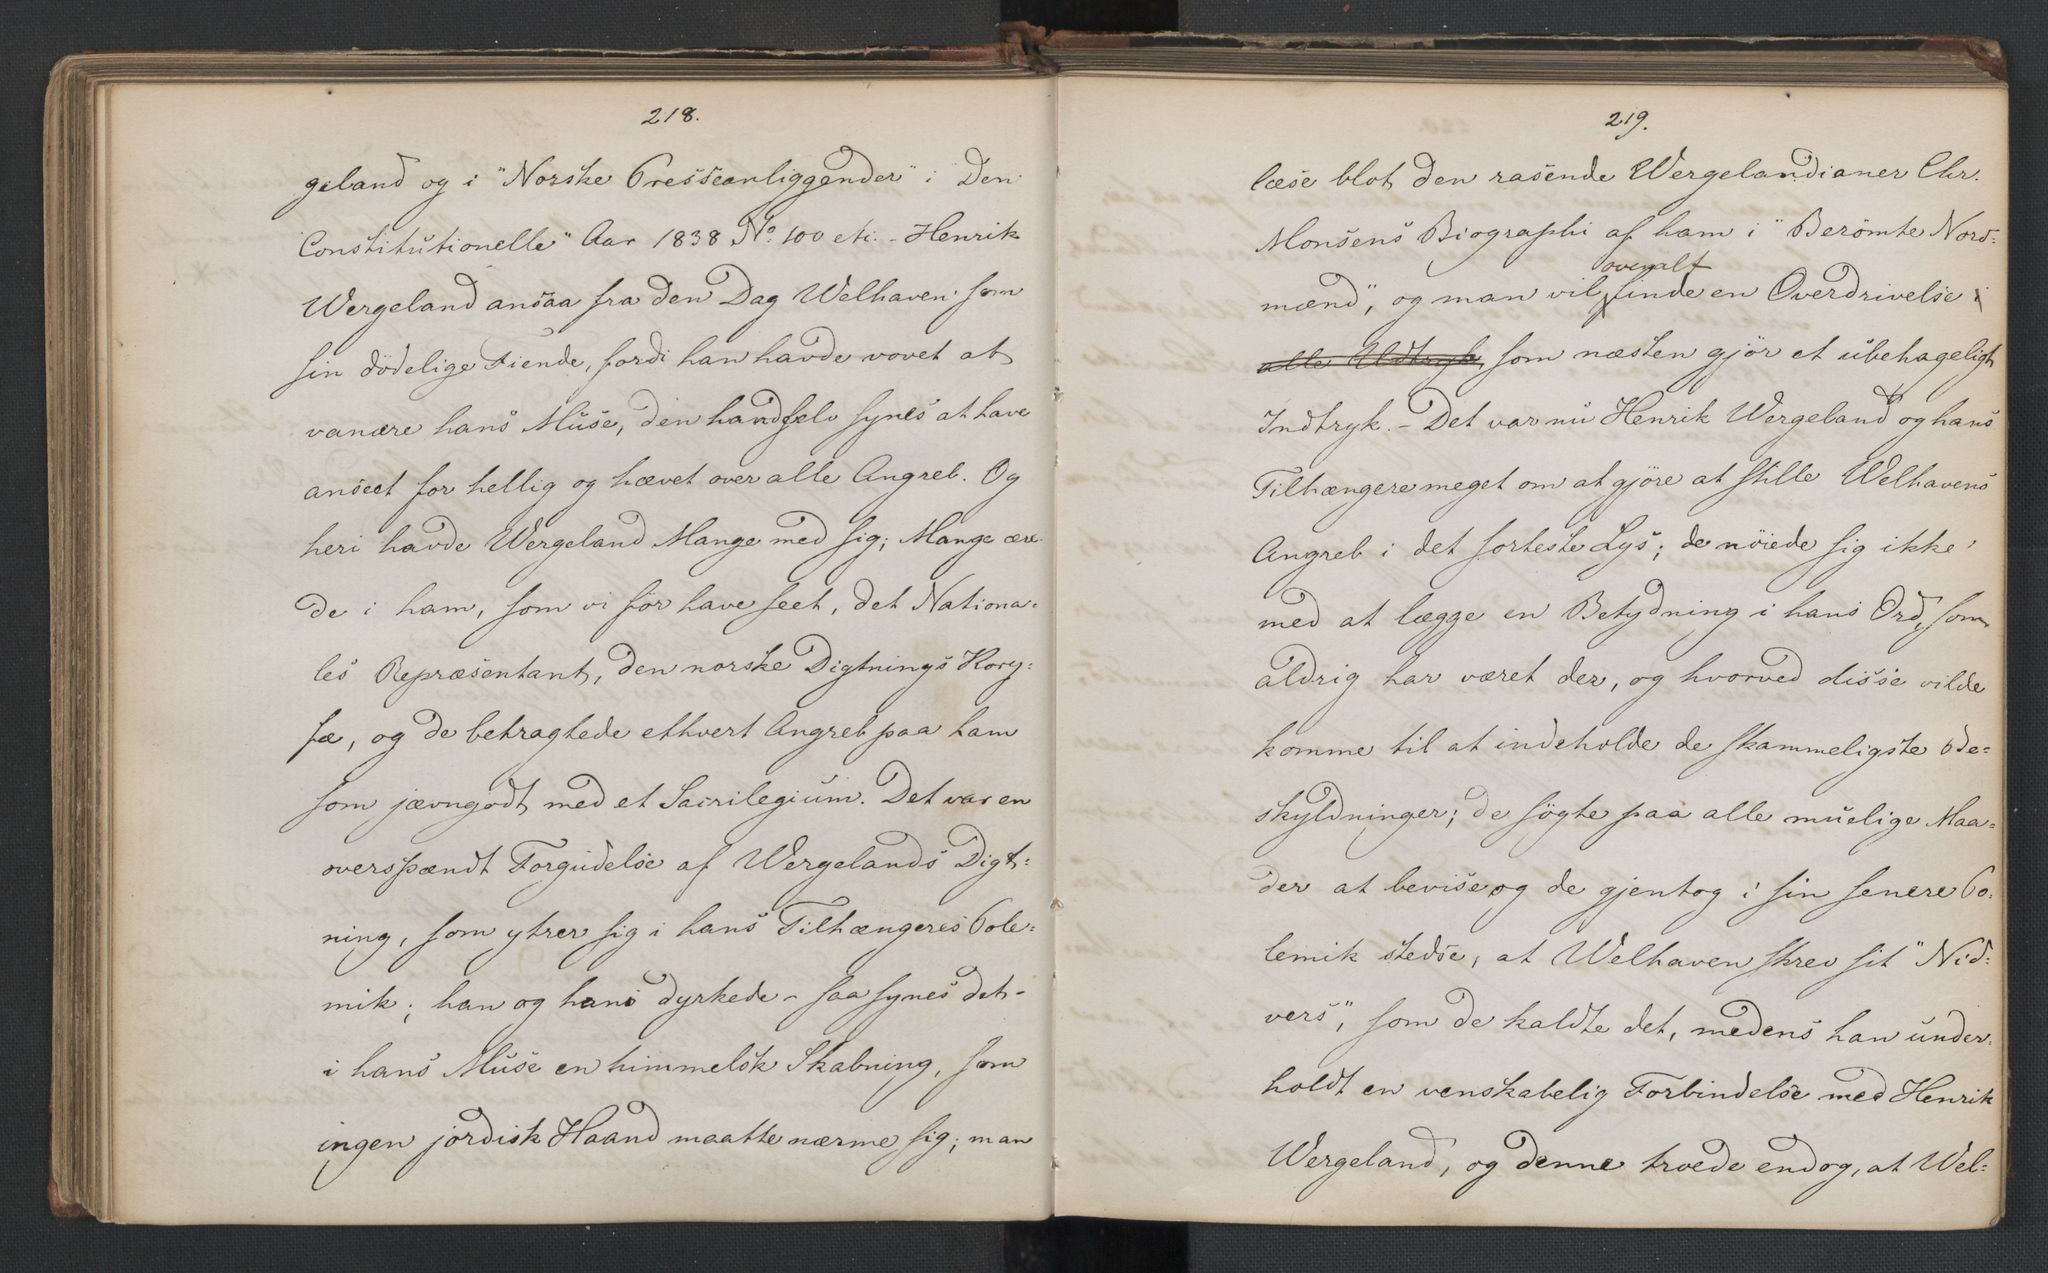 218.
geland og i "Norske Presseanliggender" i Den
Constitutionelle" Aar 1838 No. 100 etc. - Henrik
Wergeland ansaa fra den Dag Welhaven som
sin dödelige Fiende, fordi han havde vovet at
vanære hans Muse, den han selv synes at have
anseet for hellig og hævet over alle Angreb. Og
heri havde Wergeland Mange med sig; Mange ære-
de i ham, som vi för have seet, det Nationa-
les Repræsentant, den norske Digtnings Kory-
fæ, og de betragtede ethvert Angreb paa ham
som jævngodt med et Sacrilegium. Det var en
overspændt Forgudelse af Wergelands Digt-
ning, som ytrer sig i hans Tilhængeres Pole-
mik; han og hans dyrkede - saa synes det -
i hans Muse en himmelsk Skabning, som
ingen jordisk Haand maatte nærme sig; man
219.
læse blot den rasende Wergelandianer Chr.
Monsens Biographi af ham i "Berömte Nord-
overalt
mænd", og man vil finde en Overdrivelse i
alle Udtryk, som næsten gjör et ubehageligt
Indtryk. - Det var nu Henrik Wergeland og hans
Tilhængere meget om at gjöre at stille Welhavens
Angreb i det sorteste Lys; de nöiede sig ikke
med at lægge en Betydning i hans Ord, som
aldrig har været der, og hvorved disse vilde
komme til at indeholde de skammeligste Be-
skyldninger; de sögte paa alle muelige Maa-
der at bevise og de gjentog i sin senere Po-
lemik stedse, at Welhaven skrev sit "Nid-
vers", som de kaldte det, medens han under-
holdt en venskabelig Forbindelse med Henrik
Wergeland, og denne troede endog, at Wel-